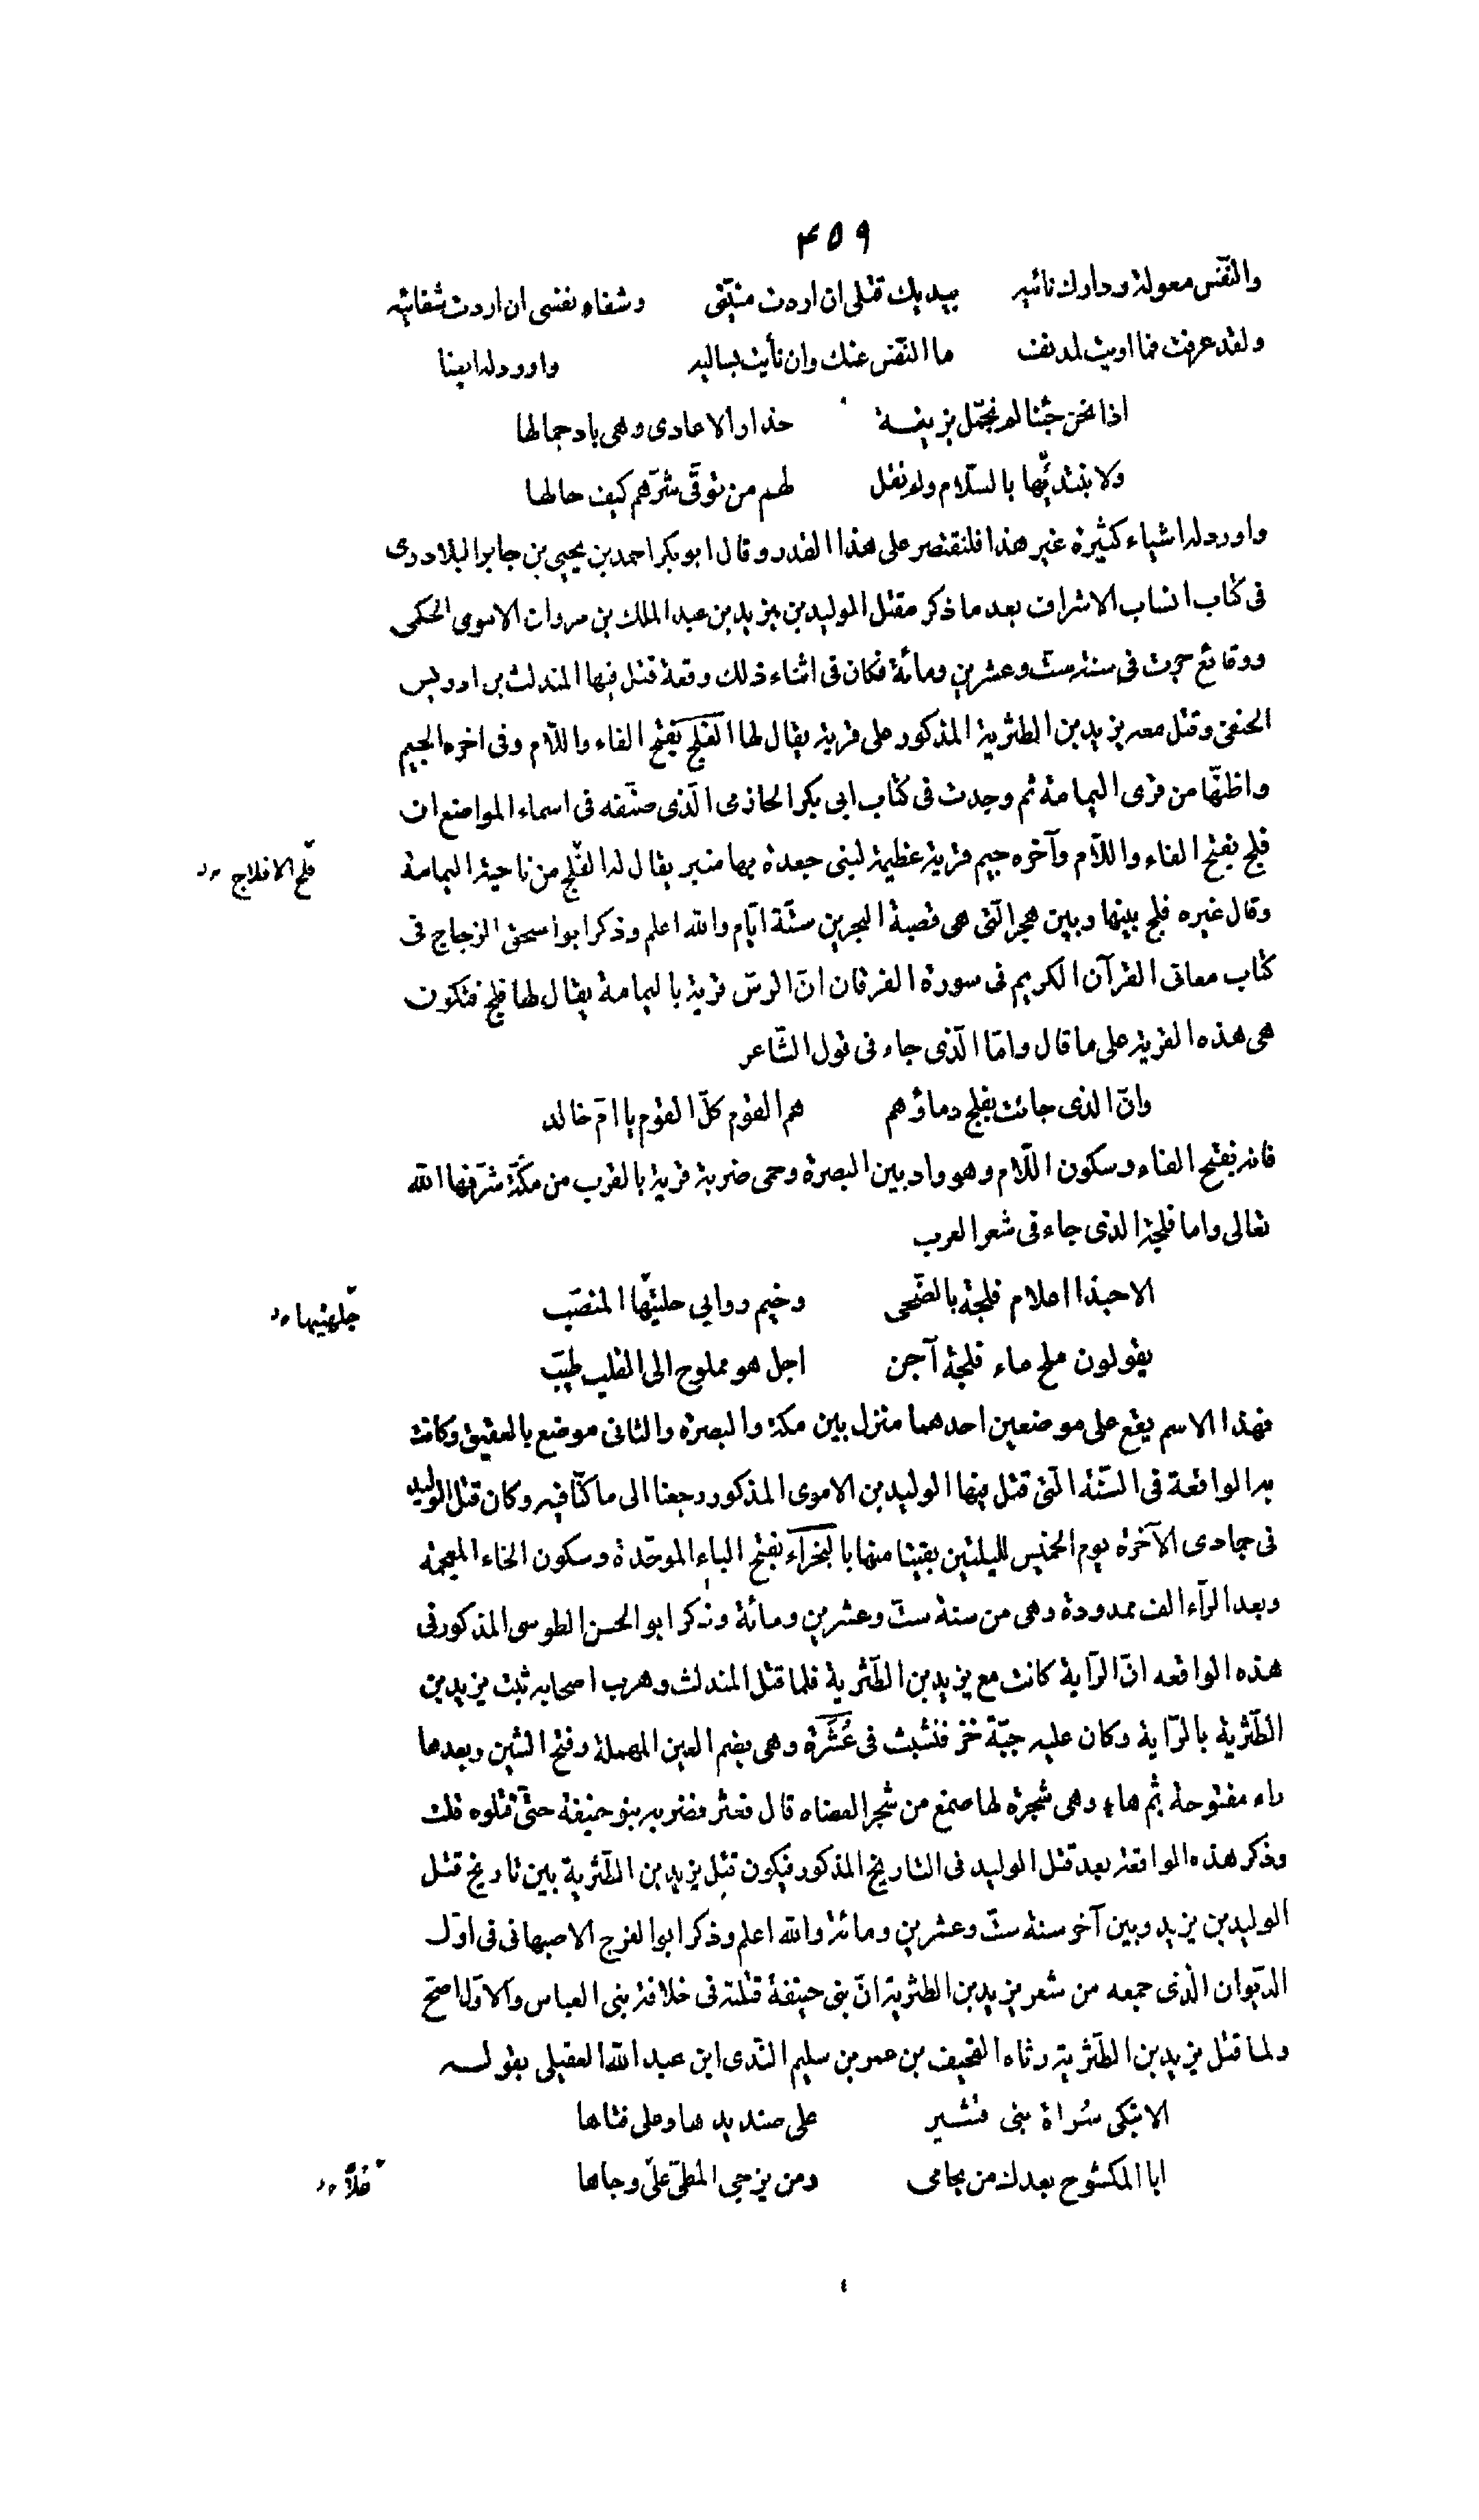 ٤٥٩
والنّفس معولة ودارك نائيه بيديك قتلى ان اردت منيّتى وشفاء نفسى ان اردت شفائيه
ولقد عرفت فما اويت لمدنف ما النّفس عنك وان نأيت بساليه واورد له ايضا
اذا نحن جئنا لم نجمّل بزينة حذار الاعادى وهى باد جمالها
ولا نبتديّها بالسّلام ولم نقل لهم من توقّى شرّهم كيف حالها
واورد له اشياء كثيرة غير هذا فلنقتصر على هذا القدر وقال ابو بكر احمد بن يحيى بن جابر البلاذرى
فى كتاب انساب الاشراف بعد ما ذكر مقتل الوليد بن يزيد بن عبد الملك بن مروان الاموى الحكمى
ووقائع جرت فى سنة ستّ وعشرين ومائة فكان فى اثناء ذلك وقعة قتل فيها المندلث بن ادريس
الحنفى وقتل معه يزيد بن الطثرية المذكور على قرية يقال لها الفلج بفتح الفاء واللّام وفى اخره الجيم
واظنّها من قرى اليمامة ثم وجدت فى كتاب ابى بكر الحازمى الّذى صنّفه فى اسماء المواضع ان
فلج بفتح الفاء واللّام وآخره جيم قرية عظيمة لبنى جعدة بها منبر يقال له الفلج من ناحية اليمامة
فلج الافلاج
وقال غيره فلج بينها وبين هجر الّتى هى قصبة البحرين ستّة ايّام والله اعلم وذكر ابو اسحق الزجاج فى
كتاب معانى القرآن الكريم فى سورة الفرقان انّ الرسّ قرية باليمامة يقال لها فلج فتكون
هى هذه القرية على ما قال وامّا الّذى جاء فى قول الشّاعر
وانّ الذى جانت بفلج دماؤهم هم القوم كلّ القوم يا امّ خالد
فانه بفتح الفاء وسكون اللّام وهو واد بين البصرة وحمى ضرية قرية بالقرب من مكّة شرّفها الله
تعالى واما فلجة الذى جاء فى شعر العرب
الا حبذا اعلام فلجة بالضّحى وخيم روابى حليّها المنصّب
جلهتيها
يقولون ملح ماء فلجة آجن اجل هو مملوح الى القلب طيّب
فهذا الاسم يقع على موضعين احدهما منزل بين مكة والبصرة والثانى موضع بالعقيق وكانت
به الواقعة فى السّنة الّتى قتل فيها الوليد بن الاموى المذكور رجعنا الى ما كنّا فيه وكان قتل الوليد
فى جمادى الآخرة يوم الخميس لليلتين بقيتا منها بالبخراء بفتح الباء الموحّدة وسكون الخاء المعجمة
وبعد الرّاء الف ممدودة وهى من سنة ستّ وعشرين ومائة وذكر ابو الحسن الطوسى المذكور فى
هذه الواقعه انّ الرّاية كانت مع يزيد بن الطّثرية فلما قتل المندلث وهرب اصحابه ثبت يزيد بن
الطّثرية بالرّاية وكان عليه جبّة خز فنشبت فى عُشَرة وهى بضم العين المهملة وفتح الشين وبعدها
راء مفتوحة ثم هاء وهى شجرة لها صمغ من شجر العضاه قال فعثر فضربه بنو حنيفة حتّى قتلوه قلت
وذكر هذه الواقعة بعد قتل الوليد فى التاريخ المذكور فيكون قتل يزيد بن الطّثرية بين تاريخ قتل
الوليد بن يزيد وبين آخر سنة ستّ وعشرين ومائة والله اعلم وذكر ابو الفرج الاصبهانى فى اوّل
الدّيوان الّذى جمعه من شعر يزيد بن الطثرية انّ بنى حنيفة قتلته فى خلافة بنى العباس والاوّل اصحّ
ولما قتل يزيد بن الطّثرية رثاه القحيف بن عمرو بن سليم النّدى ابن عبد الله العقيلى بقوله
الا نبكى سُراة بنى قشير على صنديدها وعلى فتاها
ابا المكشوح بعدك من يحامى ومن يزجى المطىّ على وجاها
فلّا
٤